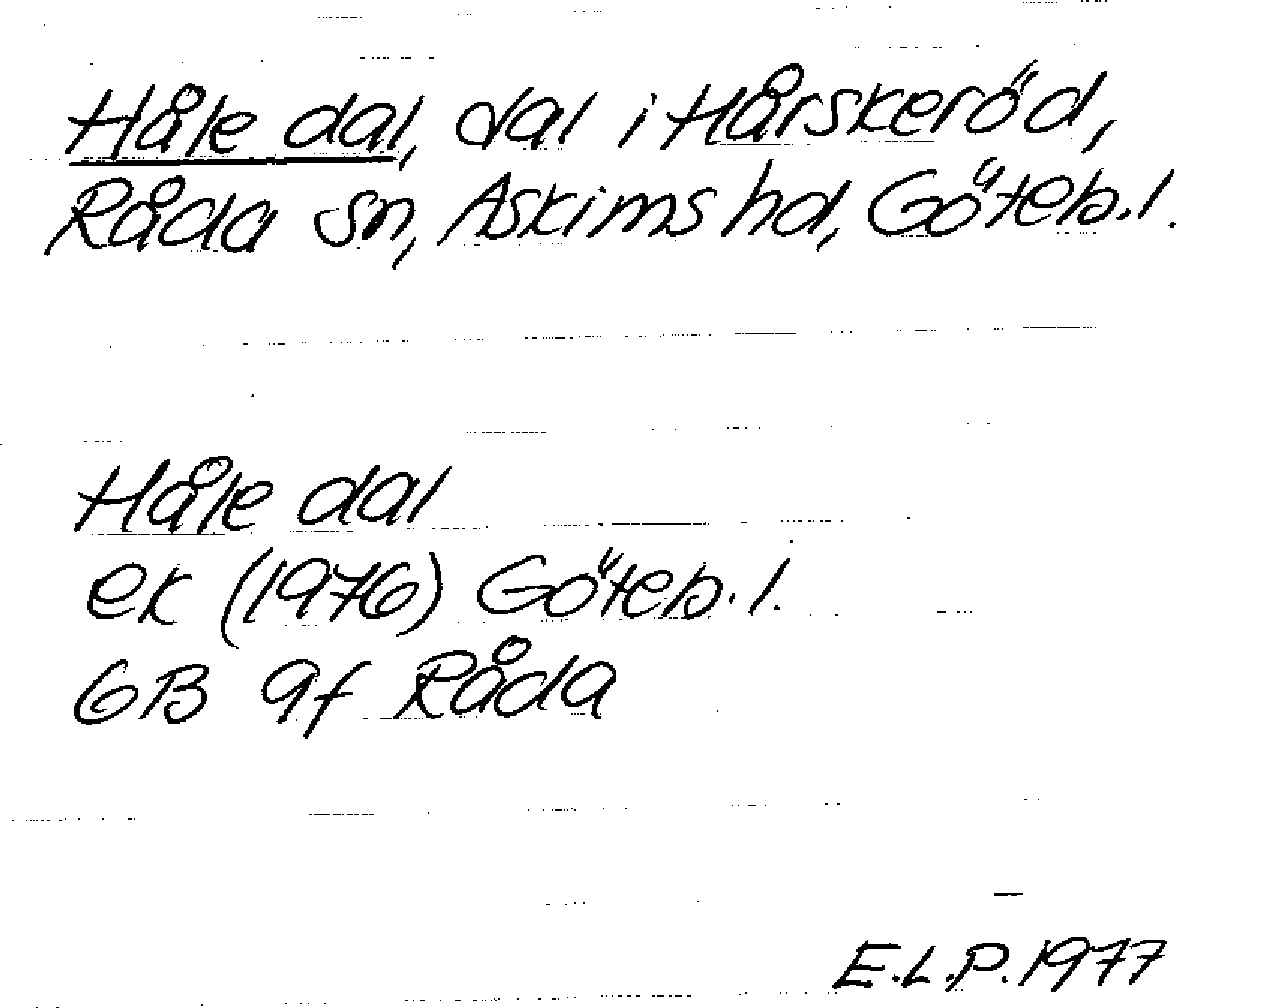 Håle dal, dal i Hårskeröd,
Råda sn, Askims hd, Göteb.l.
Håle dal
ek (1976) Göteb.l.
6B 9f Råda
E.L.P. 1977